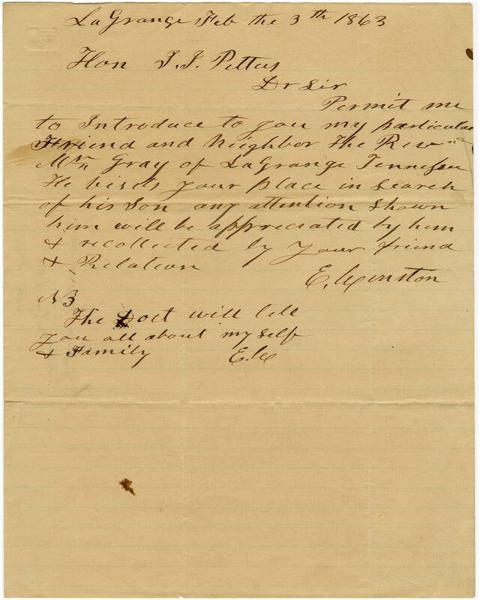 LaGrange Feb the 3th 1863
Hon J. J. Pettus
Dr Sir
Permit me
to Introduce to you my particular
Friend and Neighbor The Rev
Gray of LaGrange Tennessee
He visits your place in search
of his Son any attention shown
him will be appreciated by him
& recollected by your friend
& Relation
E. Winston
NB
The will tell
you all about my self
& Family E W